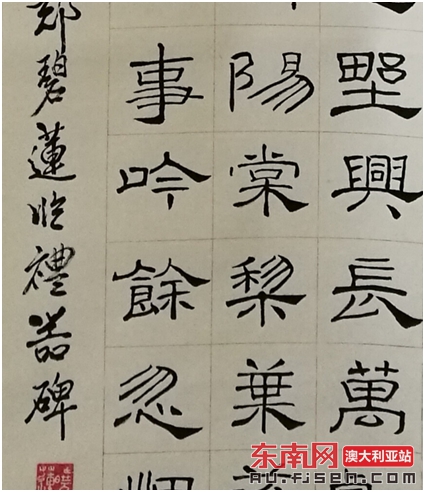 野興長萬
陽棠梨葉
事吟餘忽
郑碧蓮临禮器碑
东南网 澳大利亚站
au.fjsen.com